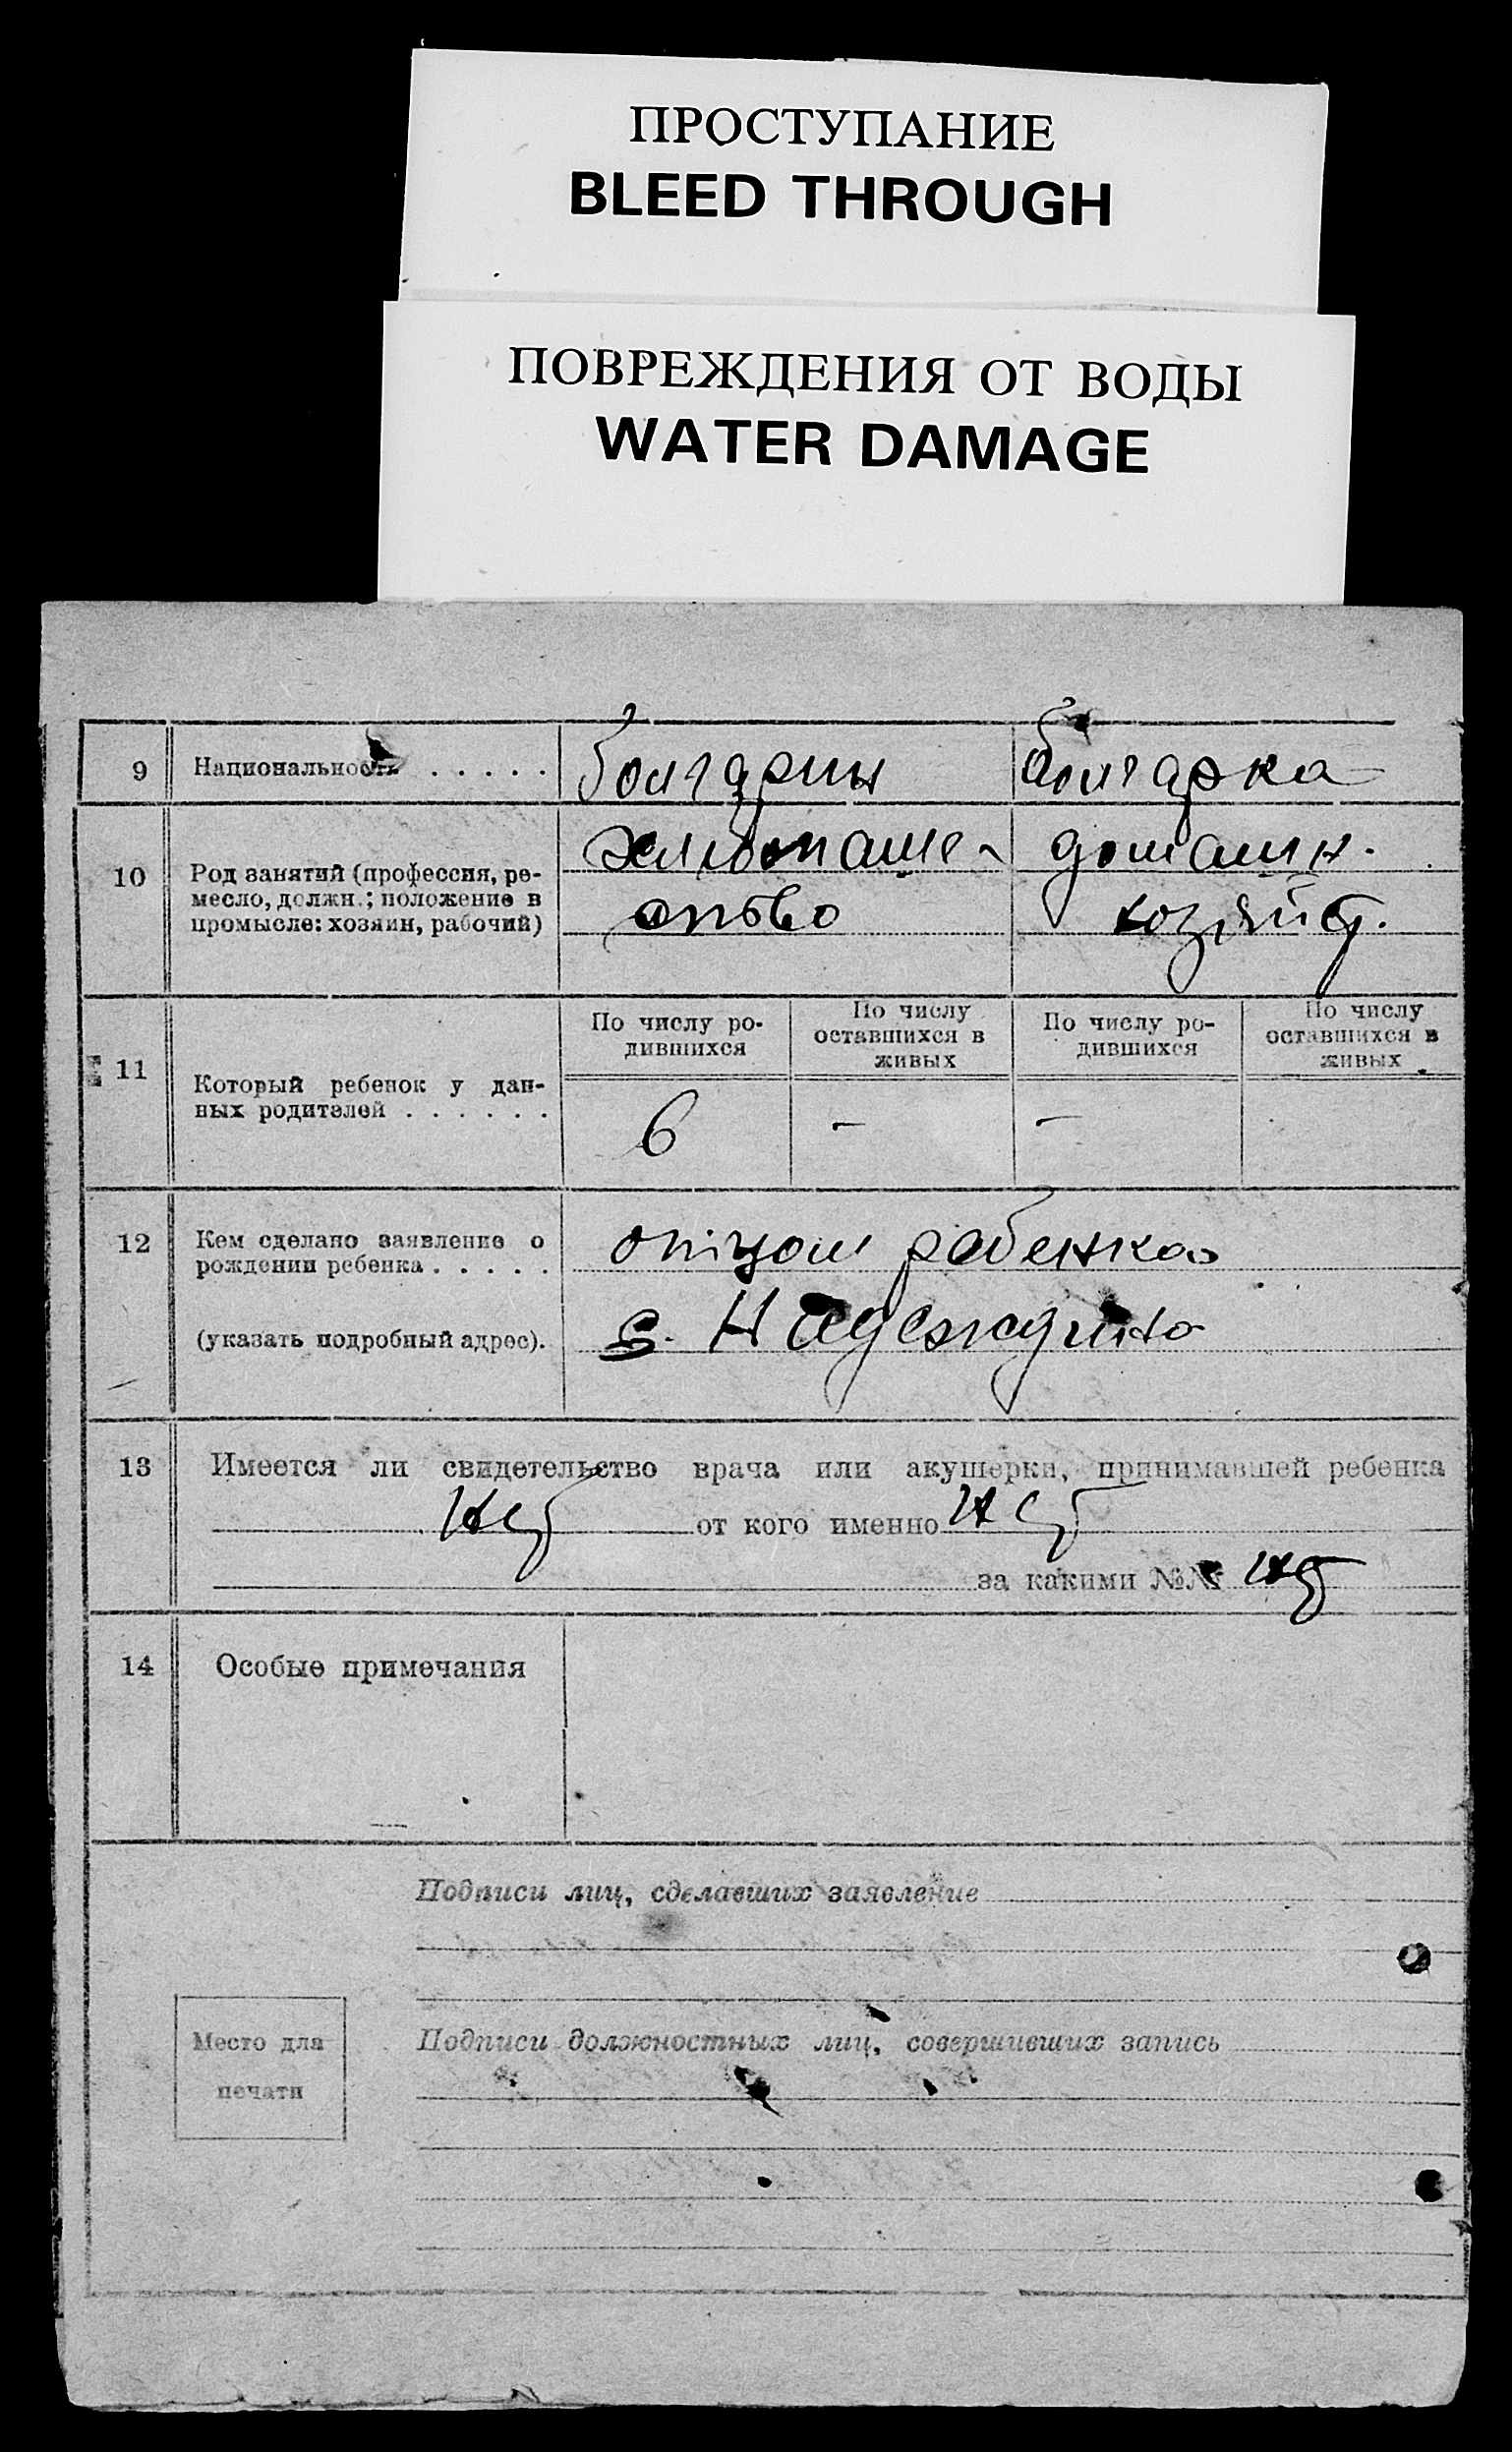 ПРОСТУПАНИЕ
BLEED THROUGH
ПОВРЕЖДЕНИЯ ОТ ВОДЫ
WATER DAMAGE
9 Национальность . . . . . болгарин болгарка
10 Род занятий (профессия, ре-
месло, должн.; положение в
промысле: хозяин, рабочий)
хлебопаше-
ство
домашн.
хозяйст.
11 Который ребенок у дан-
ных родителей . . . . . .
По числу ро-
дившихся
По числу
оставшихся в
живых
По числу ро-
дившихся
По числу
оставшихся в
живых
6 - -
12 Кем сделано заявление о
рождении ребенка . . . . .
(указать подробный адрес).
отцом ребенка
с. Надеждино
13 Имеется ли свидетельство врача или акушерки, принимавшей ребенка
нет от кого именно нет
за какими №№ нет
14 Особые примечания
Подписи лиц, сделавших заявление
Место для
печати
Подписи должностных лиц, совершивших запись